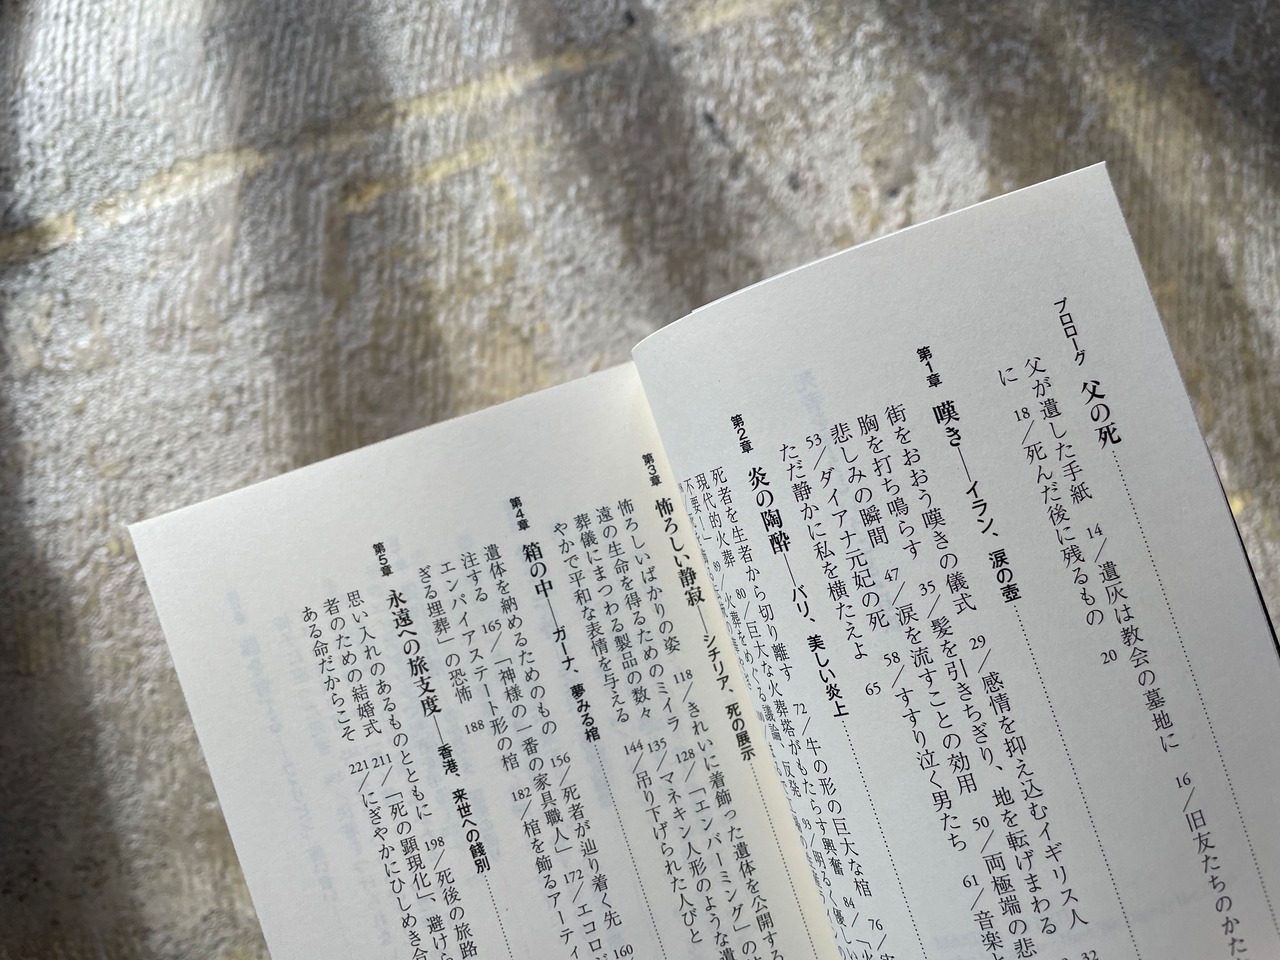 プロローグ 父の死
父が遺した手紙 14/遺灰は教会の墓地に 16/旧友たちのかた
に 18/死んだ後に残るもの 20
第1章 嘆き――イラン、涙の壺
街をおおう嘆きの儀式 29/感情を抑え込むイギリス人 32
胸を打ち鳴らす 35/髪を引きちぎり、地を転げまわる
悲しみの瞬間 47/涙を流すことの効用 50/両極端の悲
53/ダイアナ元妃の死 58/すすり泣く男たち 61/音楽
ただ静かに私を横たえよ 65
第2章 炎の陶酔――バリ、美しい炎上
死者を生者から切り離す 72/牛の形の巨大な棺 76/
現代的火葬 80/巨大な火葬塔がもたらす興奮 84/
第3章 怖ろしい静寂――シチリア、死の展示
怖ろしいばかりの姿 118/きれいに着飾った遺体を公開する
遠の生命を得るためのミイラ 128/「エンバーミング」の
葬儀にまつわる製品の数々 135/マネキン人形のような遺
やかで平和な表情を与える 144/吊り下げられた人びと
第4章 箱の中――ガーナ、夢みる棺
遺体を納めるためのもの 156/死者が辿り着く先 160
注する 165/「神様の一番の家具職人」 172/エコロジ
エンパイアステート形の棺 182/棺を飾るアーティ
ぎる埋葬」の恐怖 188
第5章 永遠への旅支度――香港、来世への餞別
思い入れのあるものとともに 198/死後の旅路
者のための結婚式 211/「死の顕現化」、避けら
ある命だからこそ 221/にぎやかにひしめき合